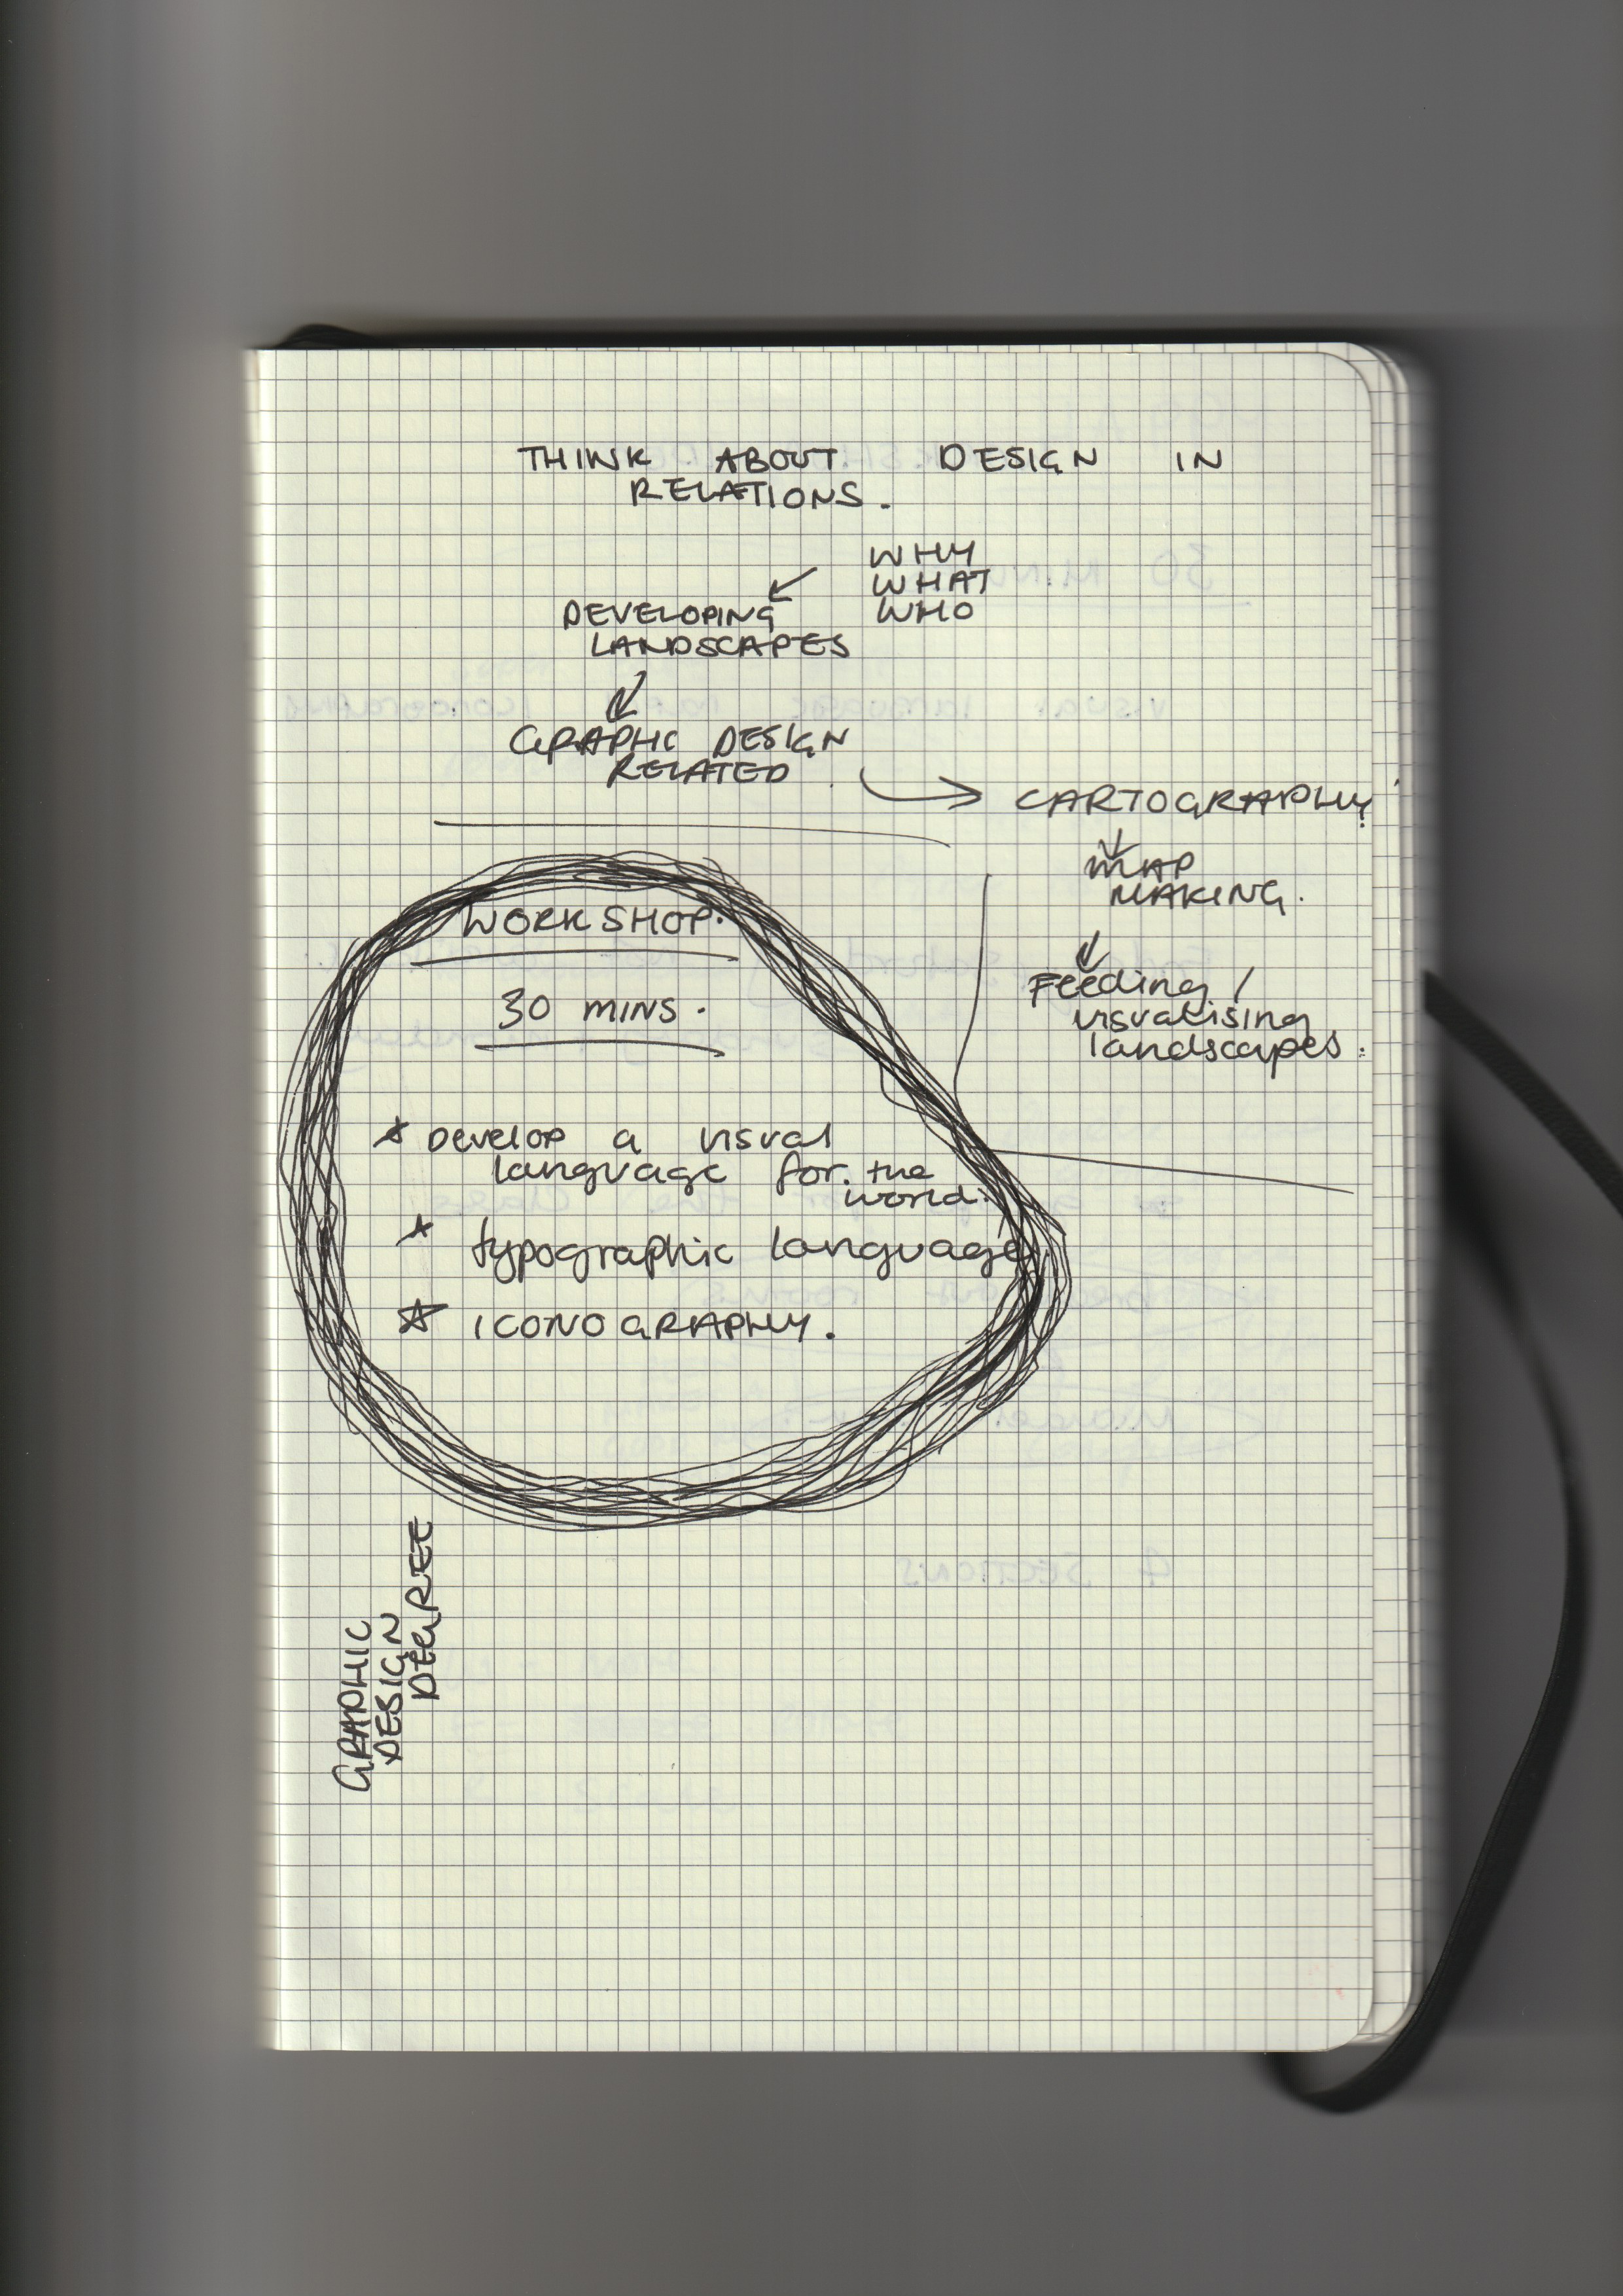 THINK ABOUT DESIGN IN
RELATIONS.
WHY
WHAT
WHO
DEVELOPING
LANDSCAPES
GRAPHIC DESIGN
RELATED
CARTOGRAPHY?
MAP
MAKING.
Feeding /
visualising
landscapes.
WORKSHOP.
30 MINS.
DEVELOP a visual
language for the
world.
typographic language
ICONOGRAPHY.
GRAPHIC
DESIGN
DEGREE